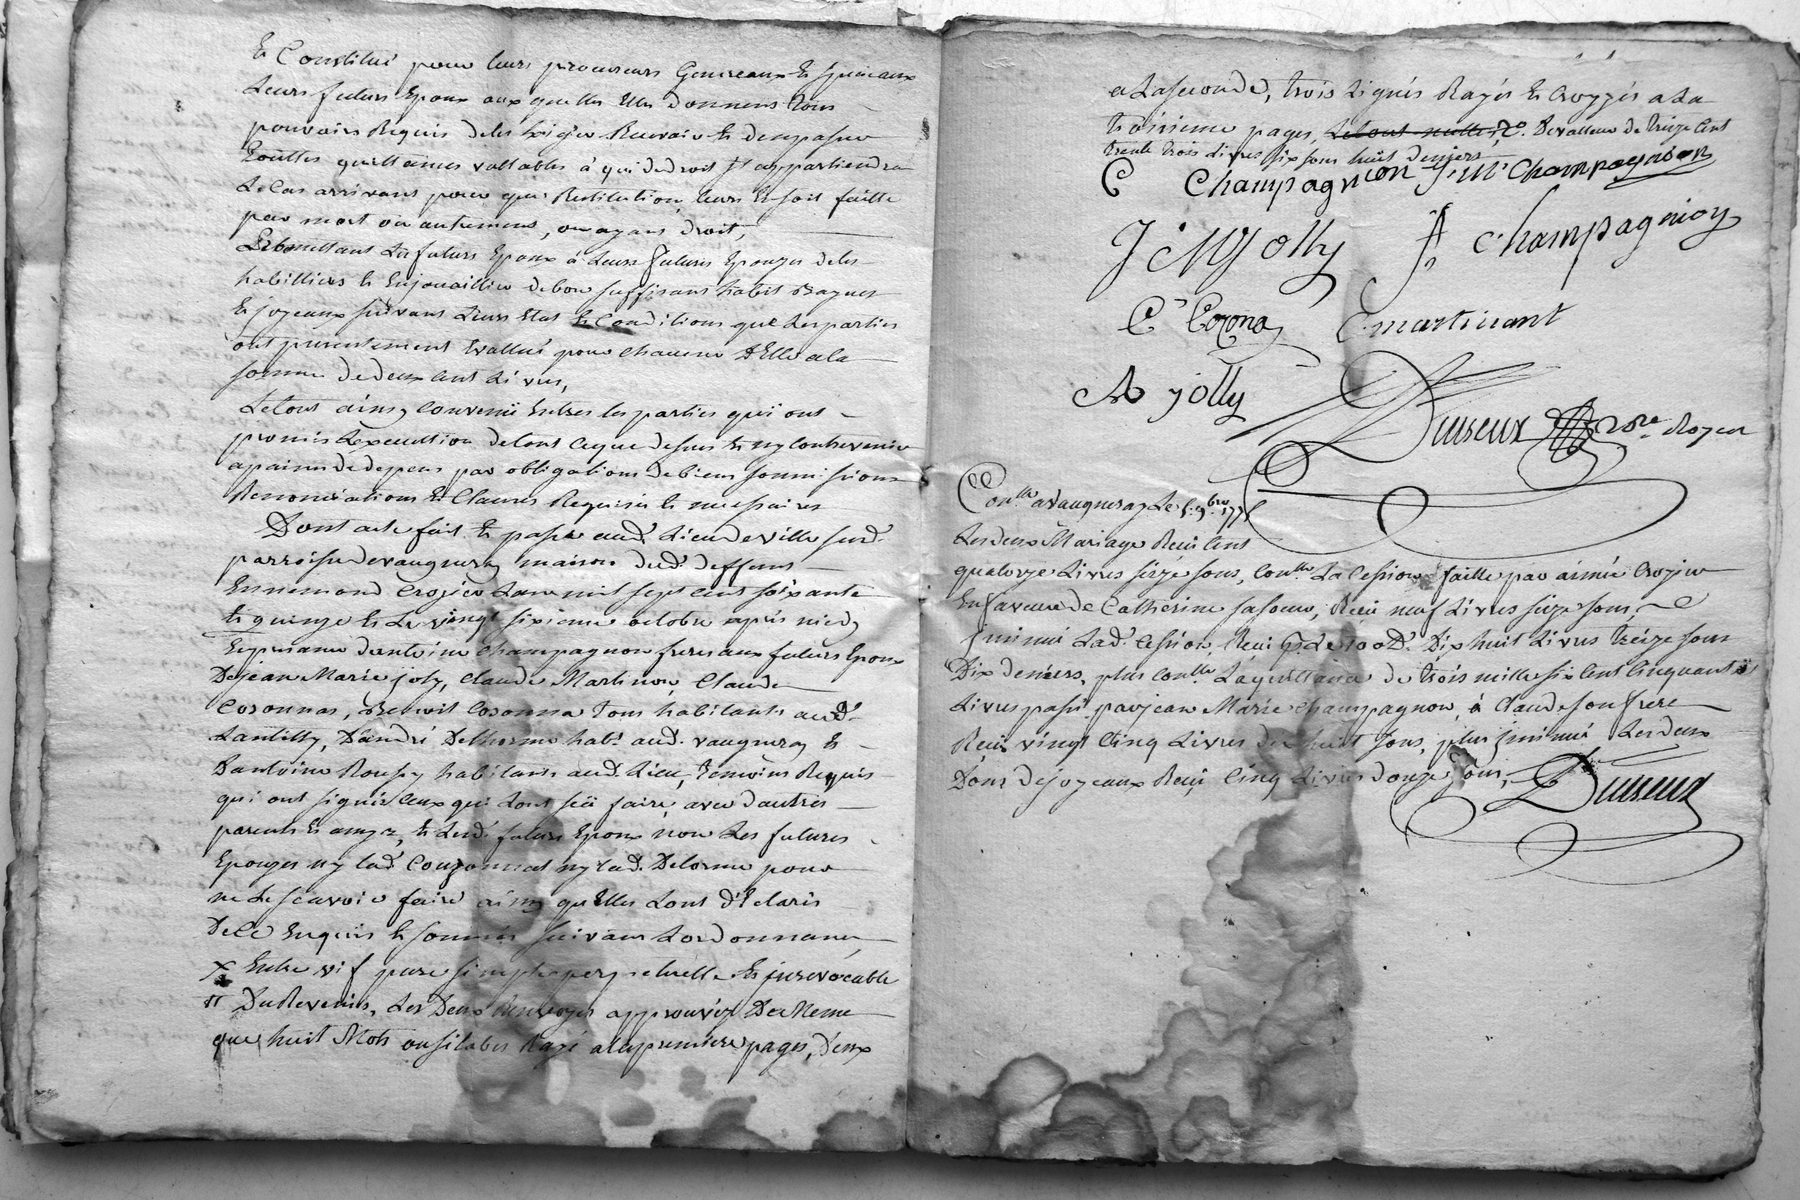 Et Constitué pour leurs procureurs Generaux Et speciaux
Leurs futurs Epoux auxquelles Elles donnent tous
pouvoirs Requis de les Exiger Recevoir Et d'en passer
toutes quittances vallables à qui de droit Il appartiendra
Le Cas arrivant pour que Restitution leurs En soit faitte
par mort ou autrement, ou ayant droit,
Promettant Les futurs Epoux à Leurs futures Epouzes de les
habilliers Et Enjouaillier de bon suffisant habit Bagues
Et joyeaux suivant Leurs Etat Et Conditions que Les parties
ont presentement Evallué pour chacune D'Elle a la
somme de deux Cent Livres,
Le tout ainsy Convenu Entres les parties qui ont
promis L'execution de tout Ce que dessus Et ny Contrevenir
a paines de depens par obligations de biens soumissions
Renonciations Et Clauses Requises Et necessaires
Dont acte fait Et passé aud. Lieu de ville sus d.
parroisse de vaugneray maison dud. deffunt
Ennemond Crozier L'an mil sept Cent soixante
Et quinze Et Le vingt sixieme octobre après midy
En presance d'antoine Champagnon freres aux futurs Epoux
De jean Marie joly, Claude Martinon, Claude
Coronnas, Benoit Coronna Tous habitants aud.
Lantilly, D'andré Delhorme hab.t aud. vaugneray Et
D'antoine Rousy habitant aud. Lieu, temoins Requis
qui ont signés Ceux qui L'ont sçü faire avec d'autres
parents Et amys, Et Lesd. futurs Epoux non Les futures
Epouzes ny lad. Couzonnat ny lad. Delorme pour
ne Le sçavoir faire ainsy qu'Elles L'ont d'Eclarés
De Ce Enquis Et sommés suivant L'ordonnance
X Entre vif pure simple perpetuelle Et jrrevocable
π Du Revenus, Les Deux Renvoyes approuvéz De Meme
que huit Mots ou silabes Rayé a la premiere pages, Deux
a La seconde, trois Lignes Rayés Et Croyzés a La
troisieme pages, Le tout nulles, De valleur de treize Cent
trente trois Livres six sous huit deniers
C Champagnion J. M. Champagnion
J M Jolly A Champagnion
C Corona C martinant
A jolly Duiseux No.re Royal
Con.lle a vaugneray Le 5. 9.bre 1775
Les deux Mariage Reçu Cent
quatorze Livres seize sous, Con.lle La Cession faitte par aimée Crozier
En faveure de Catherine sa soeur, Reçu neuf Livres seize sous,
jnsinué Lad. Cession, Reçu p. Le 100 D. Dix huit Livres treize sous
Dix deniers, plus Con.lle La quittance de trois mille six Cent Cinquante
Livres passé par jean Marie Champagnon, à Claude son frere
Reçu vingt Cinq Livres dix huit sous, plus jnsinué Les deux
Dons de joyeaux Reçu Cinq Livres douze sous,
Duiseux